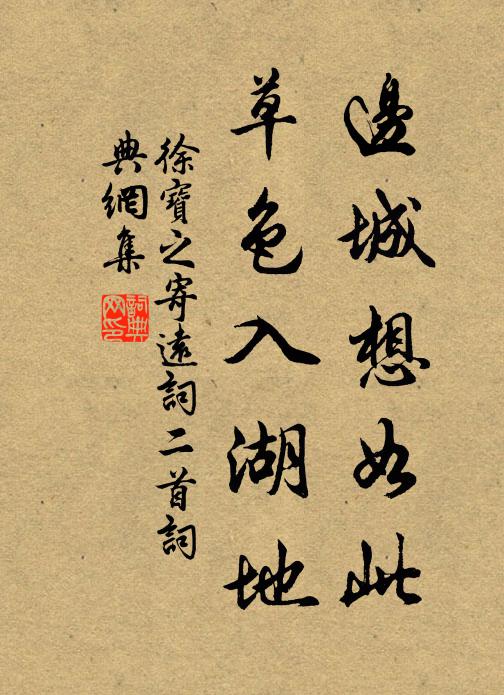 邊城想如此
草色入湖地
徐寶之寄遠詞二首詞
典網集
詞典
网印